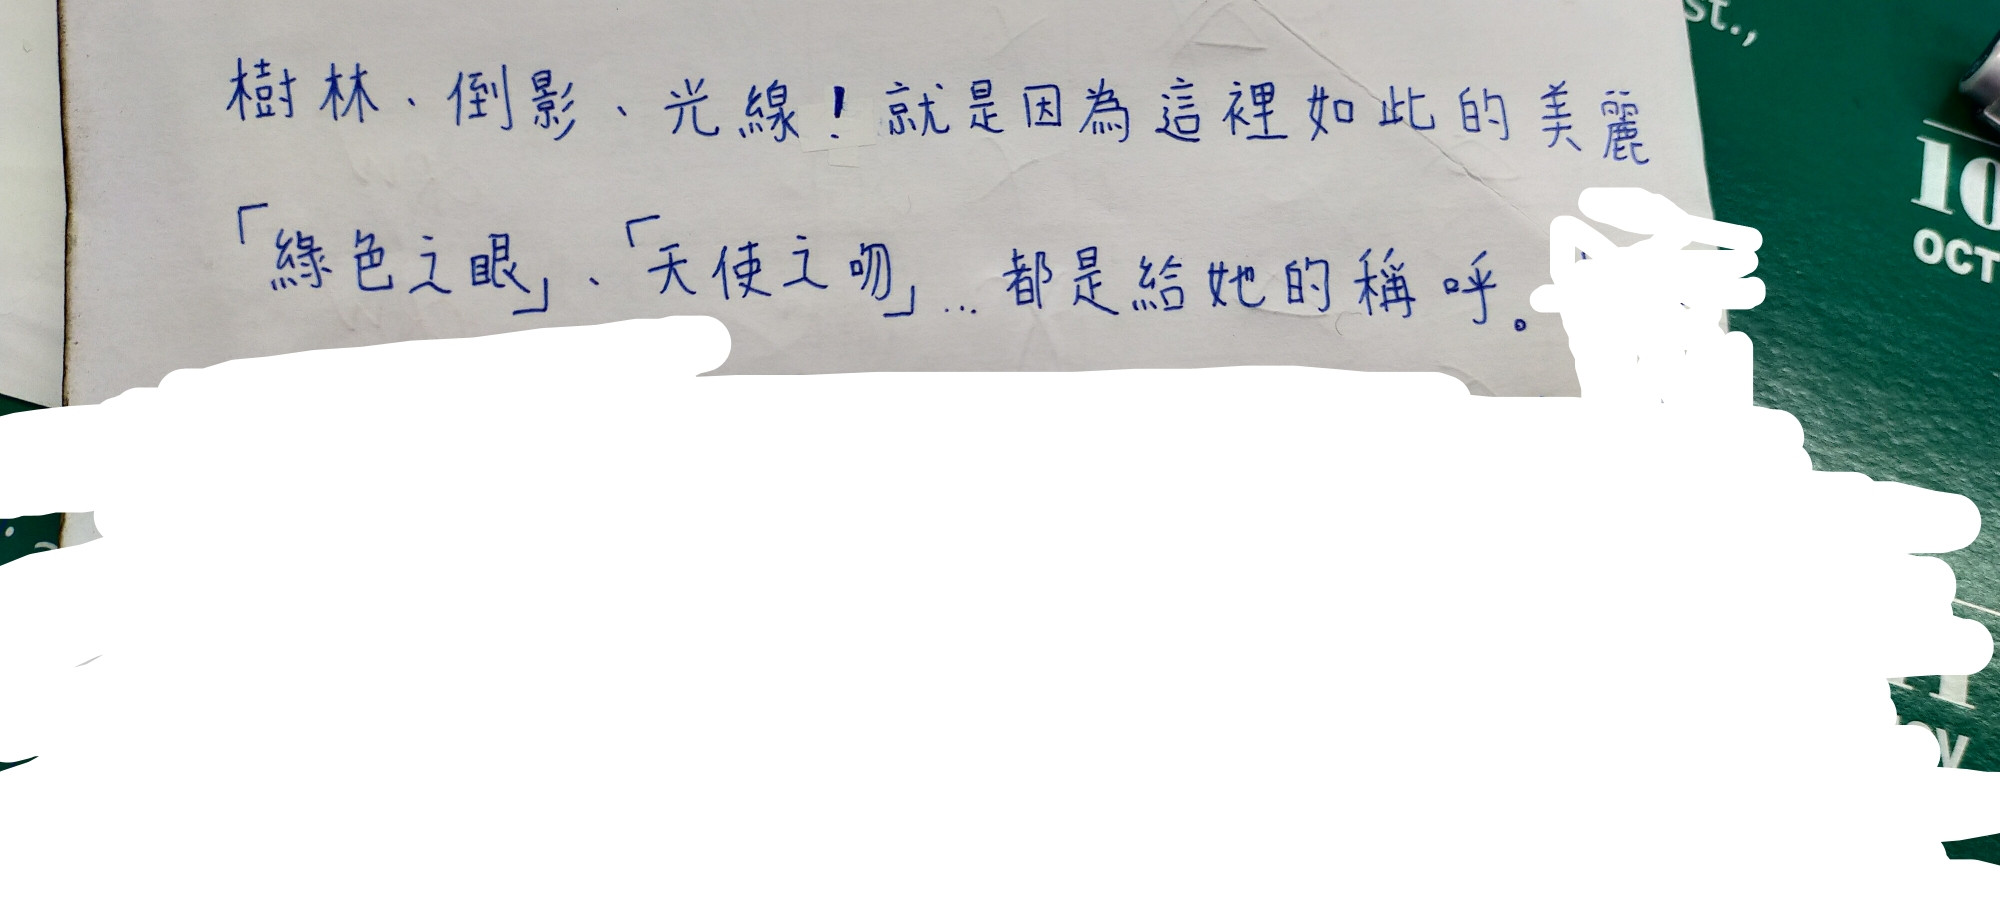 樹林、倒影、光線！就是因為這裡如此的美麗
「綠色之眼」、「天使之吻」…都是給她的稱呼。
st.,
10
OCT